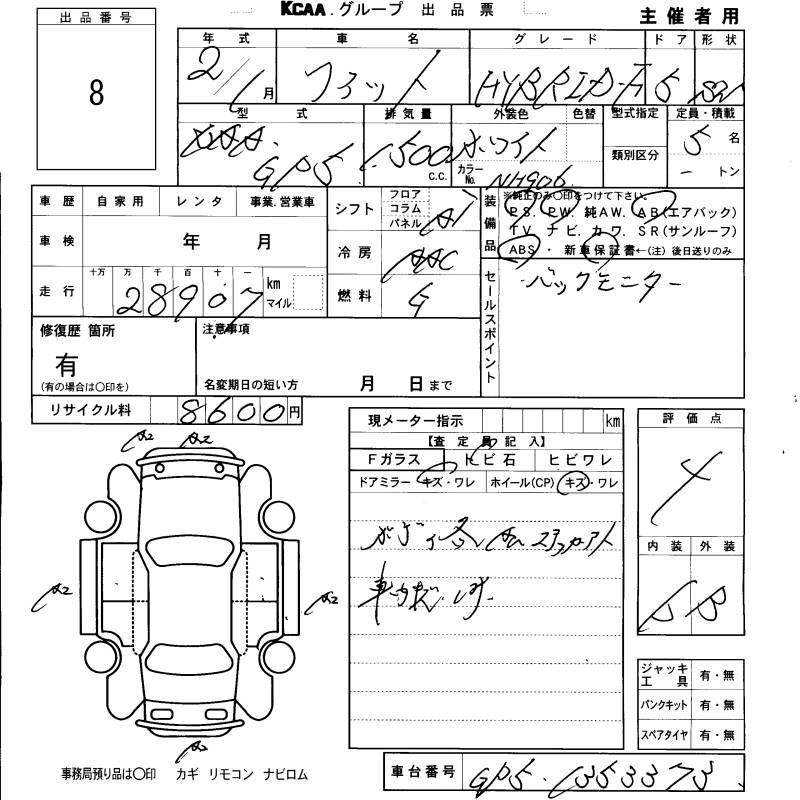 KCAA.グループ 出品票
主催者用
出品番号
8
年式 車名 グレード ドア 形状
2/1月 フィット HYBRID-F 5
型式 排気量 外装色 色替 型式指定 定員・積載
GP5 1500c.c. ホワイト 5名
カラーNo. NH906 類別区分 －トン
車歴 自家用 レンタ 事業.営業車
シフト フロア コラム パネル AT
装備品 ※純正のみ○印をつけて下さい。
PS. PW. 純AW. AB(エアバック)
TV. ナビ. カワ. SR(サンルーフ)
ABS・新車保証書←(注)後日送りのみ
車検 年 月
冷房 AAC
走行 十万 万 千 百 十 一
28907 km マイル
燃料 G
セールスポイント
バックモニター
修復歴 箇所
有
(有の場合は○印を)
注意事項
名変期日の短い方 月 日まで
リサイクル料 8600円
現メーター指示 km
【査定員記入】
Fガラス トビ石 ヒビワレ
ドアミラー キズ・ワレ ホイール(CP) キズ・ワレ
A2 A2
A2 A2
A2
評価点
4
内装 外装
B B
ジャッキ工具 有・無
パンクキット 有・無
スペアタイヤ 有・無
事務局預り品は○印 カギ リモコン ナビロム
車台番号 GP5-1353373